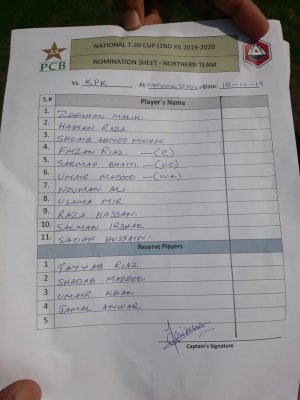 PCB
NATIONAL T-20 CUP (2ND XI) 2019-2020
NOMINATION SHEET - NORTHERN TEAM
Vs. KPK At: NATIONAL STADIUM Date: 18-10-19
S.# Player's Name
1. ZEESHAN MALIK.
2. HASSAN RAZA.
3. SHOAIB AHMED MINHAS
4. FAIZAN RIAZ —(C)
5. SARMAD BHATTI —(VC)
6. UMAIR MASOOD —(WK)
7. NOUMAN ALI.
8. USAMA MIR
9. RAZA HASSAN.
10. SALMAN IRSHAD
11. SADAF HUSSAIN.
Reserve Players
1 TAYYAB RIAZ
2 SHADAB MAJEED
3 UMAIR KHAN.
4 JAMAL ANWAR.
5
Captain's Signature